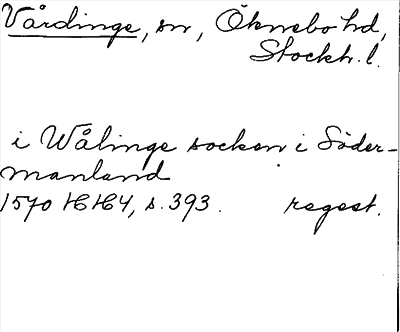 Vårdinge, sn, Öknebo hd,
Stockh. l.
i Wålinge socken i Söder-
manland
1570 HH4, s. 393. regest.